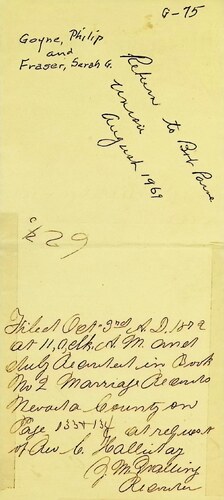 G-75
Goyne, Philip
and
Frazer, Sarah G.
Return to Bob Paine
Unvin
August 1969
62
Filed Oct. 3rd A.D. 1872
at 11, O,clk, A.M. and
duly Recorded in Book
No 2 Marriage Records
Nevada County on
Page 133+134 at request
of Rev. C. Hallistay
J. M. Dralling
Recorder